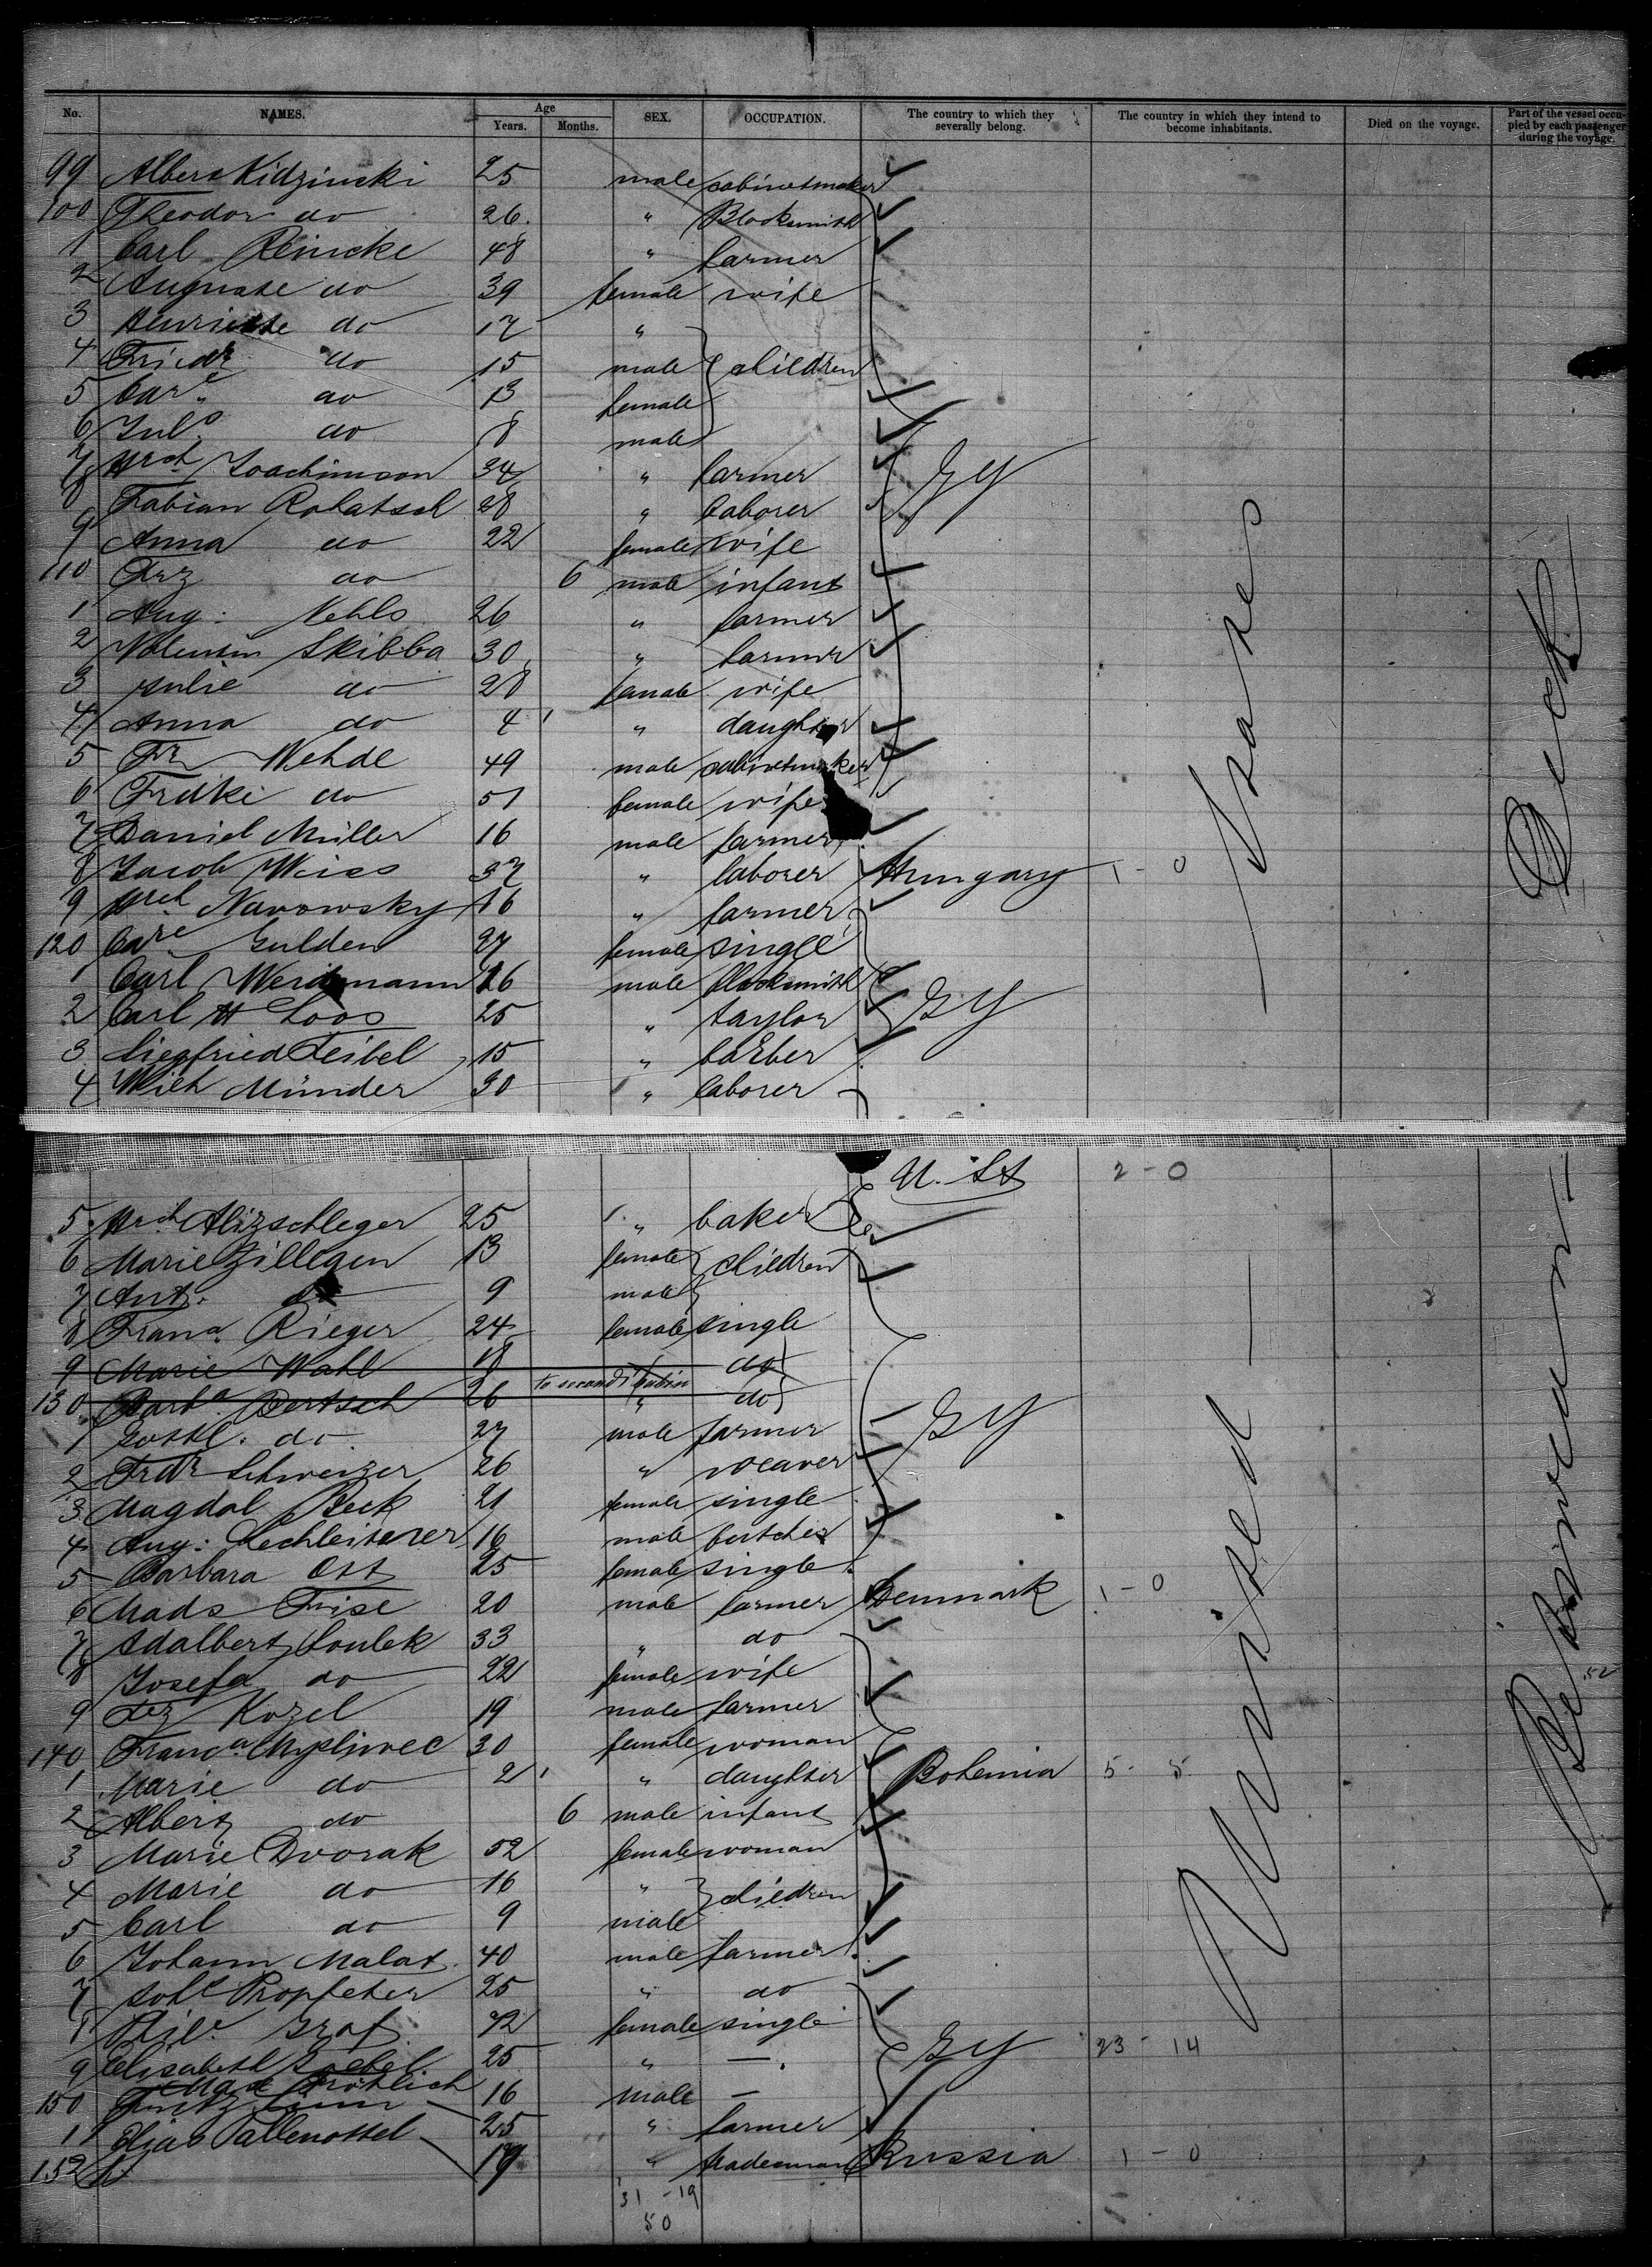 No. NAMES. Age Years. Months. SEX. OCCUPATION. The country to which they severally belong. The country in which they intend to become inhabitants. Died on the voyage. Part of the vessel occupied by each passenger during the voyage.
99 Kidzinski 25 male cabinetmaker
100 Theodor do 26 " Blacksmith
1 Carl Reincke 48 " farmer
2 Auguste do 39 female wife
3 Henriette do 17 "
4 Friedr do 15 male children
5 Care do 13 female
6 Juls do 8 male
7 Hrch Joachimson 34 " farmer Gy
8 Fabian Rolatsch 28 " laborer
9 Anna do 22 female wife
110 Frz do 6 male infant
1 Aug: Nehls 26 " farmer
2 Valentin Skibba 30 " farmer
3 Julie do 28 female wife
4 Anna do 4 " daughter
5 Fr Wehde 49 male cabinetmaker
6 Frdke do 51 female wife
7 Daniel Müller 16 male farmer
8 Jacob Weiss 37 " laborer Hungary 1 - 0
9 Hrch Navowsky 16 " farmer
120 Care Gulden 27 female single
1 Carl 26 male Blacksmith
2 Carl H Loos 25 " taylor Gy
3 Siegfried Leibel 15 " barber
4 Mich Münder 30 " laborer
U. St 2 - 0
5 Hrch Alizschleger 25 " baker
6 Marie Zillegen 13 female children
7 Ant. do 9 male
8 Franca Rieger 24 female single
9 Marie Wahl 18 do
to second Cabin
130 Barba Bertsch 26 " do
1 Gottl. do 27 male farmer Gy
2 Frdr Schweizer 26 " weaver
3 Magdal Beck 21 female single
4 Aug: Lechleiterer 16 male butcher
5 Barbara Ott 25 female single
6 Mads Frise 20 male farmer Denmark 1 - 0
7 Adalbert Soulek 33 " do
8 Josefa do 22 female wife
9 Frz Kozel 19 male farmer
140 Franca Mypliwec 30 female woman
1 Marie do 2 " daughter Bohemia 5 - 5
2 Albert do 6 male infant
3 Marie Dvorak 52 female woman
4 Marie do 16 " children
5 Carl do 9 male
6 Johann Malat 40 male farmer
7 Propfeter 25 " do
8 Graf 42 female single
9 Elisabeth Goebel 25 " — Gy 23 - 14
Fröhlich
150 16 male —
1 Elias Tallenottel 25 " farmer
152 19 " tradesman Russia 1 - 0
31 - 19
50
United States
Between Deck
52